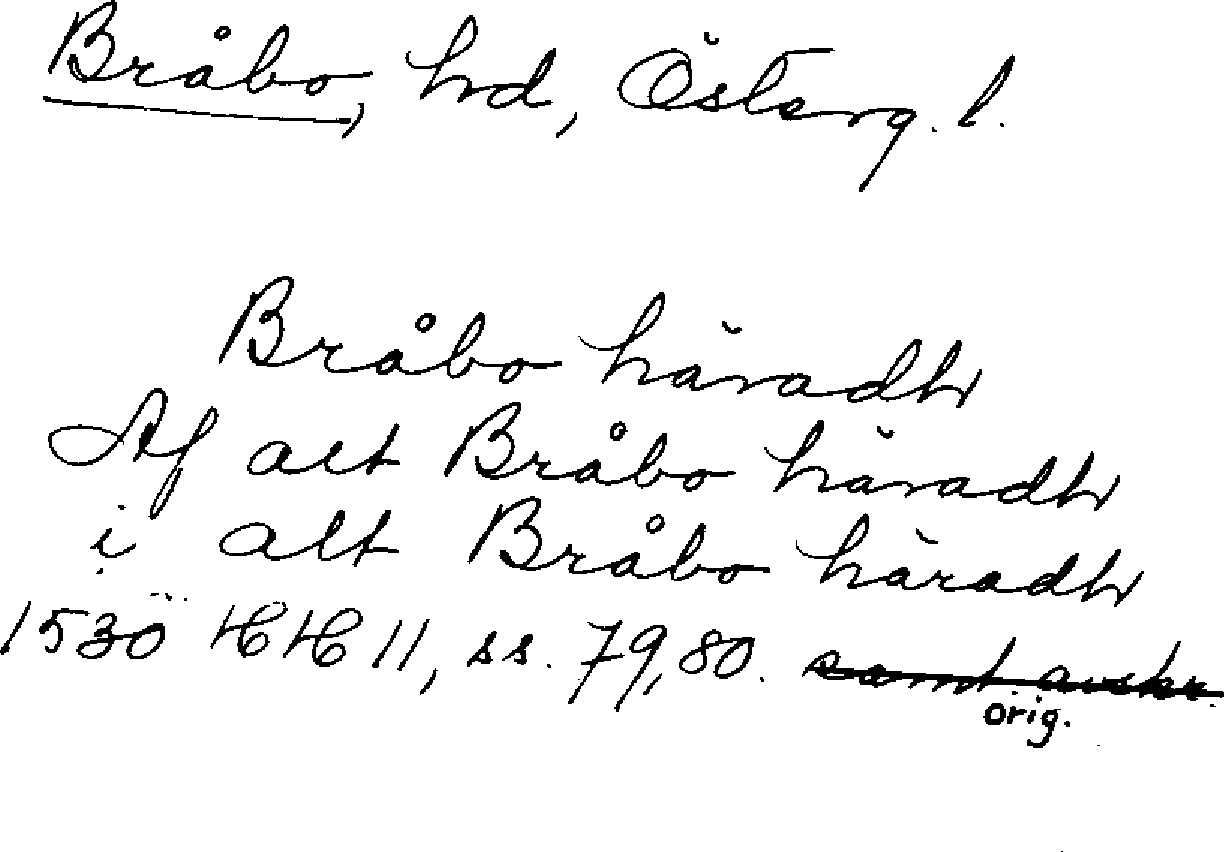 Bråbo, hd, Österg. l.
Bråbo häradh
Af alt Bråbo häradh
i alt Bråbo häradh
1530 HH 11, ss. 79, 80. samt. avskr.
orig.